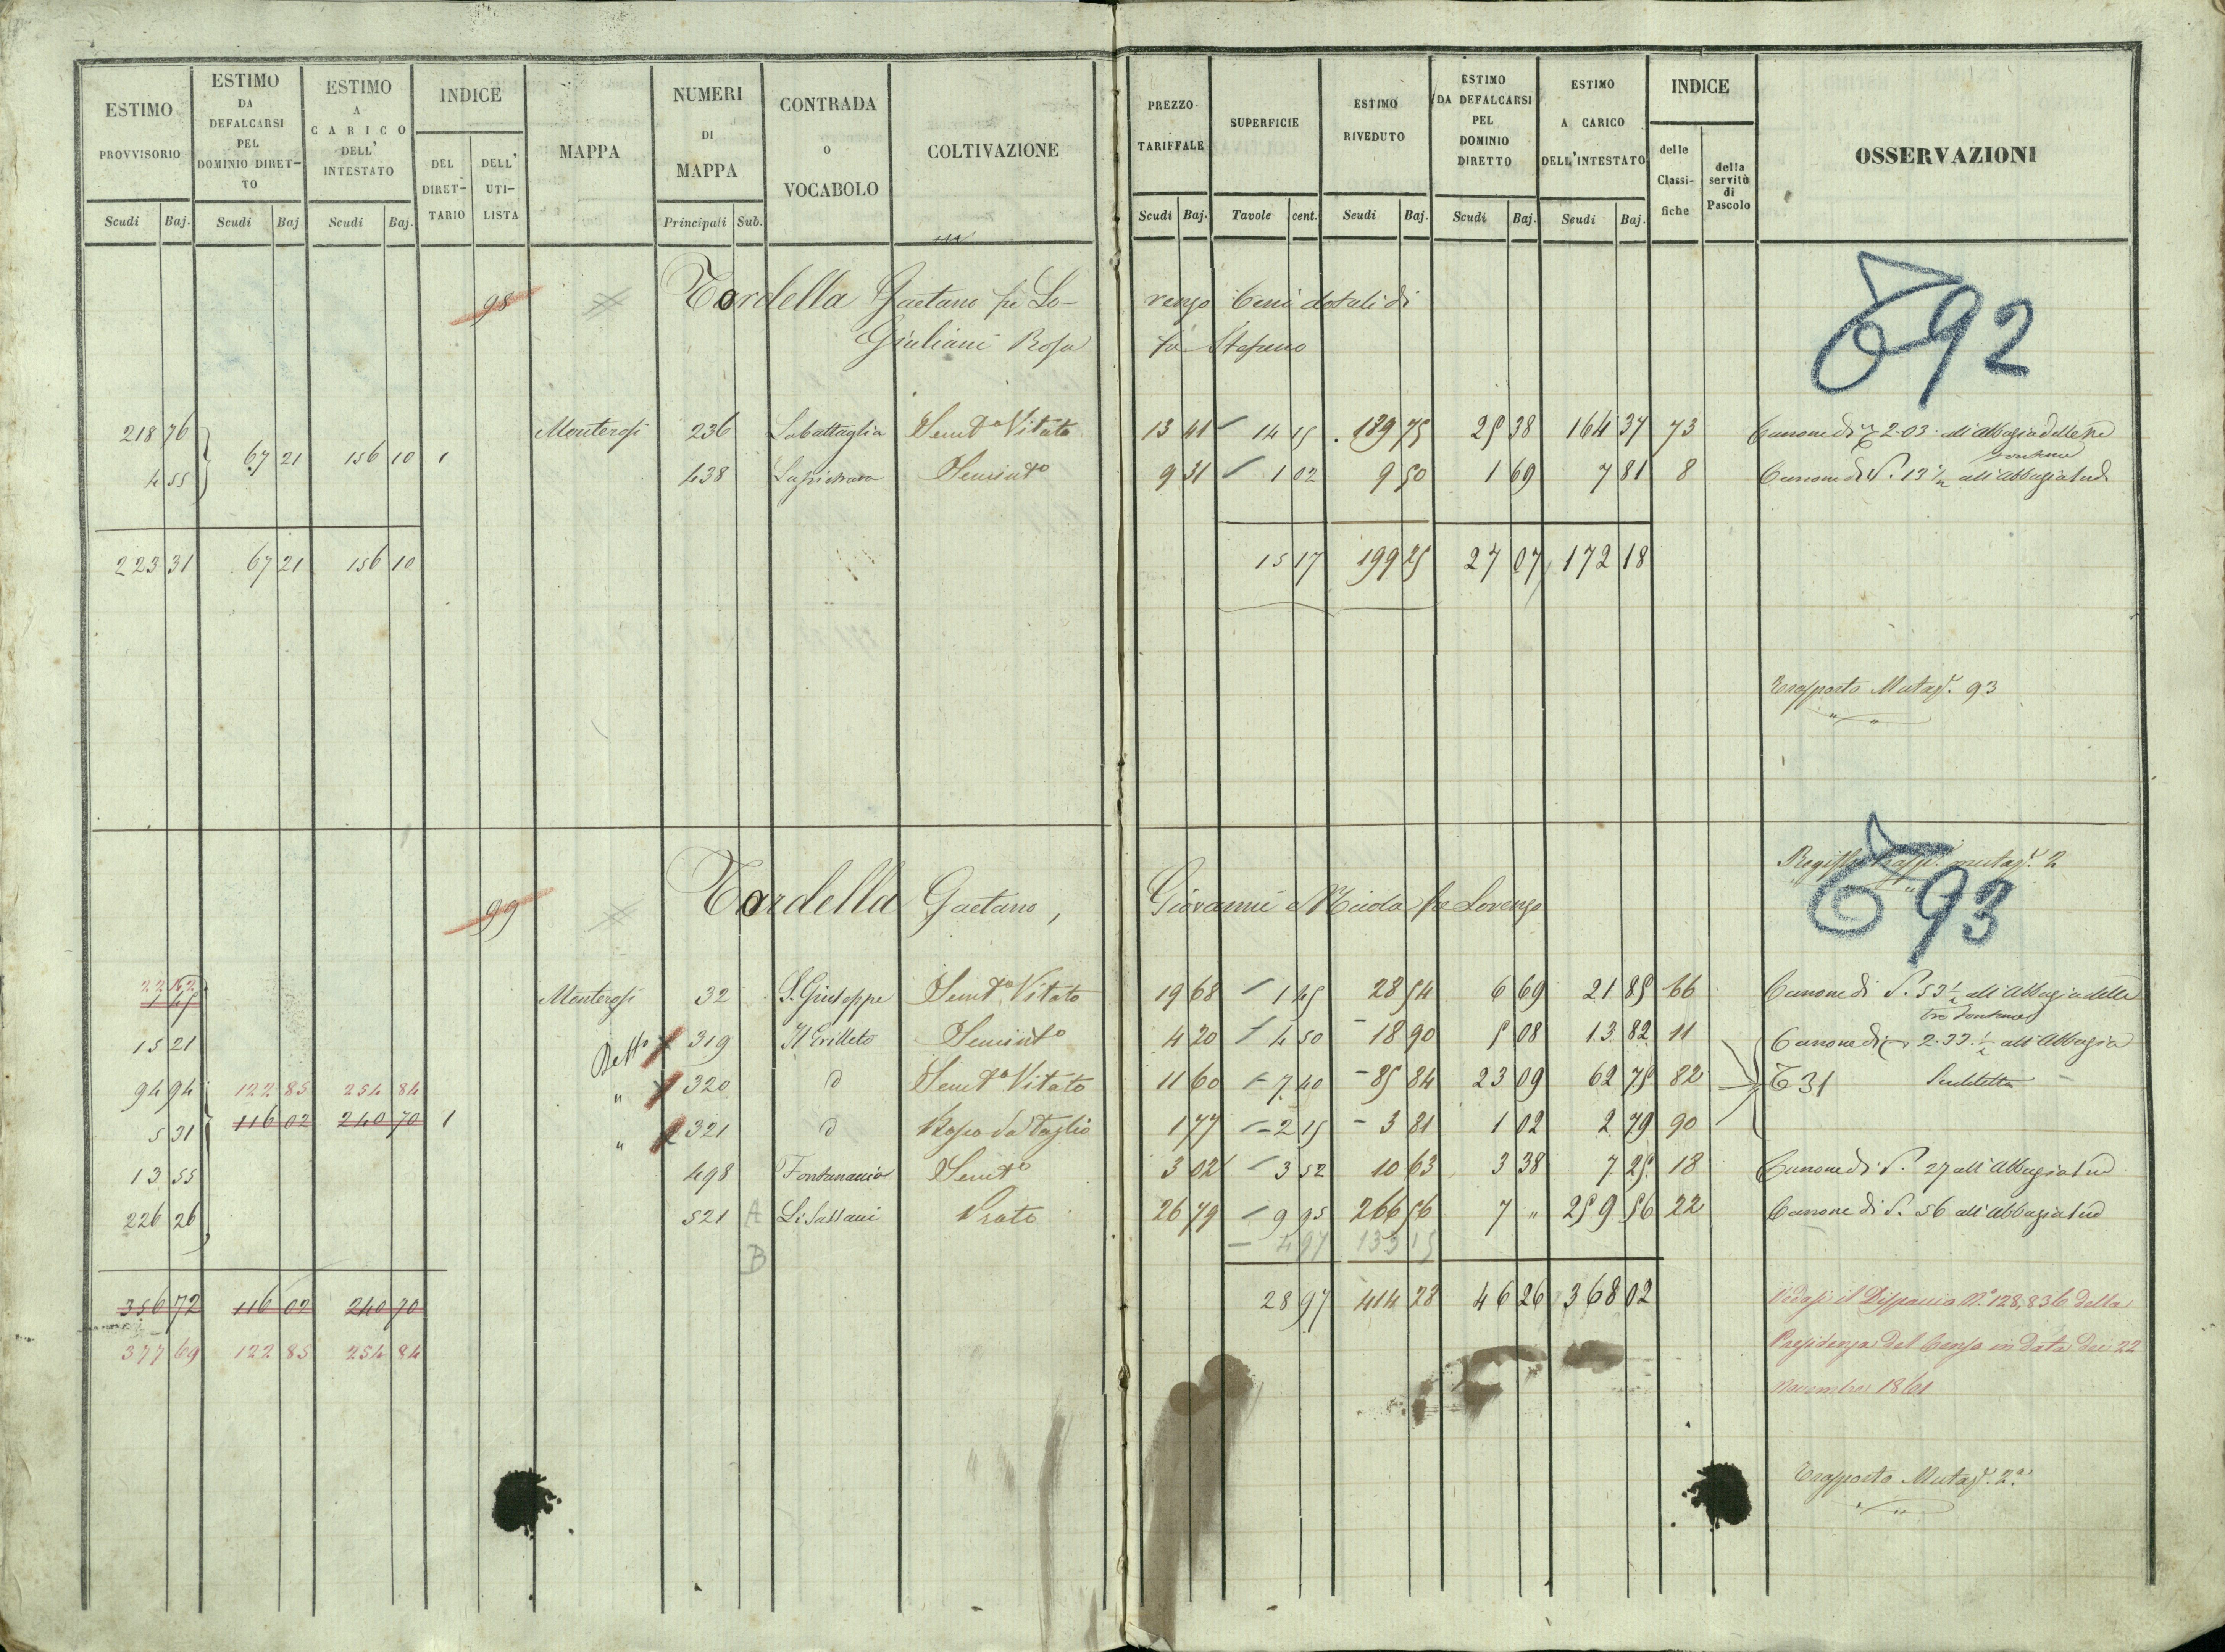 ESTIMO PROVVISORIO | ESTIMO DA DEFALCARSI PEL DOMINIO DIRET-TO | ESTIMO A CARICO DELL' INTESTATO | INDICE DEL DIRET-TARIO | DELL' UTI-LISTA | MAPPA | NUMERI DI MAPPA | CONTRADA O VOCABOLO | COLTIVAZIONE | PREZZO TARIFFALE | SUPERFICIE | ESTIMO RIVEDUTO | ESTIMO DA DEFALCARSI PEL DOMINIO DIRETTO | ESTIMO A CARICO DELL'INTESTATO | INDICE delle Classi-fiche | della servitù di Pascolo | OSSERVAZIONI
Scudi Baj. | Scudi Baj | Scudi Baj. | Principali Sub. | Scudi Baj. | Tavole cent. | Scudi Baj. | Scudi Baj. | Scudi Baj.
98 Tordella Gaetano fu Lo- renzo beni dotali di 692
Giuliani Rosa fu Stefano
218 76 | Monterosi 236 Labattaglia Semto Vitato 13 41 14 15 189 75 25 38 164 37 73 Canone di 2.03 all'Abbazia delle tre Fontane
4 55 | 67 21 | 156 10 | 1 | 438 Seminto 9 31 1 02 9 50 1 69 7 81 8 Canone di 13 ½ all'Abbazia sud
223 31 | 67 21 | 156 10 | 15 17 199 25 27 07 172 18
Trasporto Mutaz. 93
Mutaz. 2
99 Tordella Gaetano, Giovanni e fu Lorenzo 693
22 42
1 45 Monterosi 32 S. Giuseppe Semto Vitato 19 68 1 45 28 54 6 69 21 85 66 Canone di 53 ½ all'Abbazia delle tre Fontane
15 21 Detto 319 Il Grilleto Seminto 4 20 4 50 18 90 5 08 13 82 11 Canone di 2.33 ½ all'Abbazia
94 94 | 122 85 | 254 84 | " 320 d Semto Vitato 11 60 7 40 85 84 23 09 62 75 82 T 31 Suddetta
5 31 | 116 02 | 240 70 | 1 | " 321 d Da Taglio 1 77 2 15 3 81 1 02 2 79 90
13 55 498 Semto 3 02 3 52 10 63 3 38 7 25 18 Canone di 27 all'Abbazia sud
226 26 521 A Li Sassani Prato 26 79 9 95 266 56 7 " 259 56 22 Canone di 56 all'Abbazia sud
B 4 97 133 15
356 72 | 116 02 | 240 70 | 28 97 414 28 46 26 368 02 Vedasi il Dispaccio N° 128,836 della
377 69 | 122 85 | 254 84 | Presidenza del Censo in data dei 22
Novembre 1861
Trasporto Mutaz. 2a